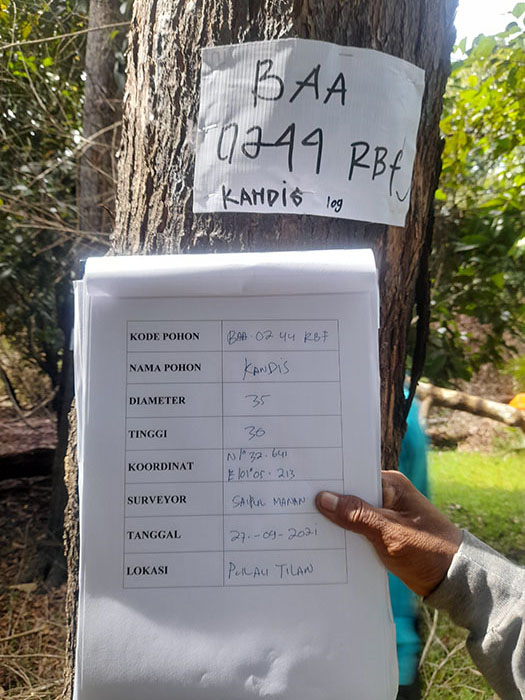 BAA
0244 RBf
KANDIS log
KODE POHON BAA-0244 RBF
NAMA POHON KANDIS
DIAMETER 35
TINGGI 30
KOORDINAT N1°32.641
E101°05.213
SURVEYOR SAIFUL MANAN
TANGGAL 27-09-2021
LOKASI PULAU TILAN